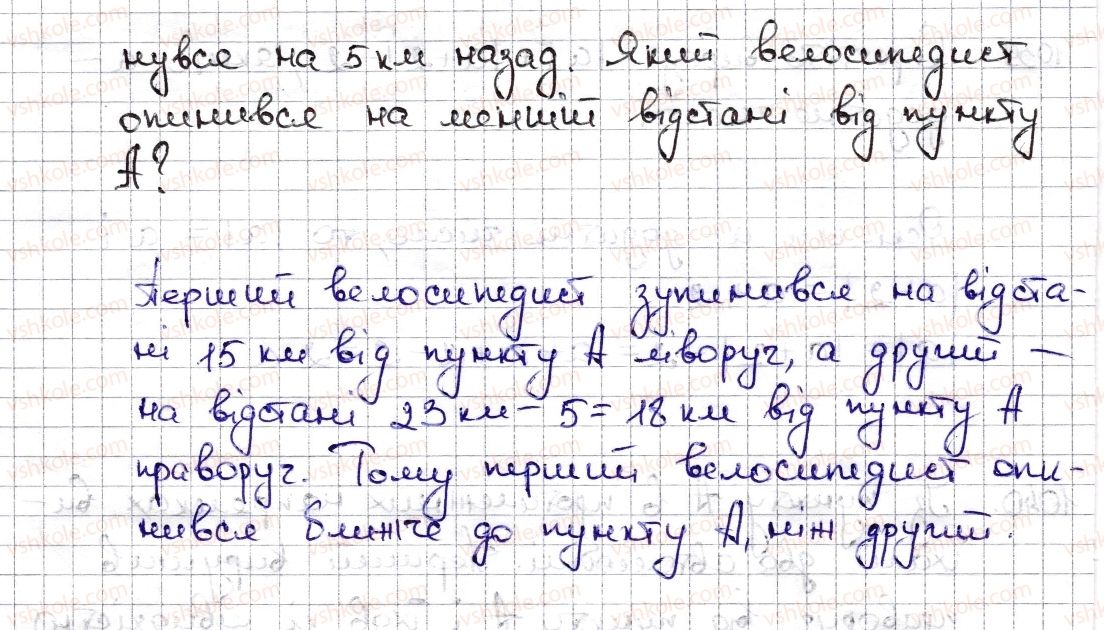 нувся на 5 км назад. Який велосипедист
опинився на меншій відстані від пункту
А?
Перший велосипедист зупинився на відста-
ні 15 км від пункту А ліворуч, а другий –
на відстані 23 км – 5 = 18 км від пункту А
праворуч. Тому перший велосипедист опи-
нився ближче до пункту А, ніж другий.